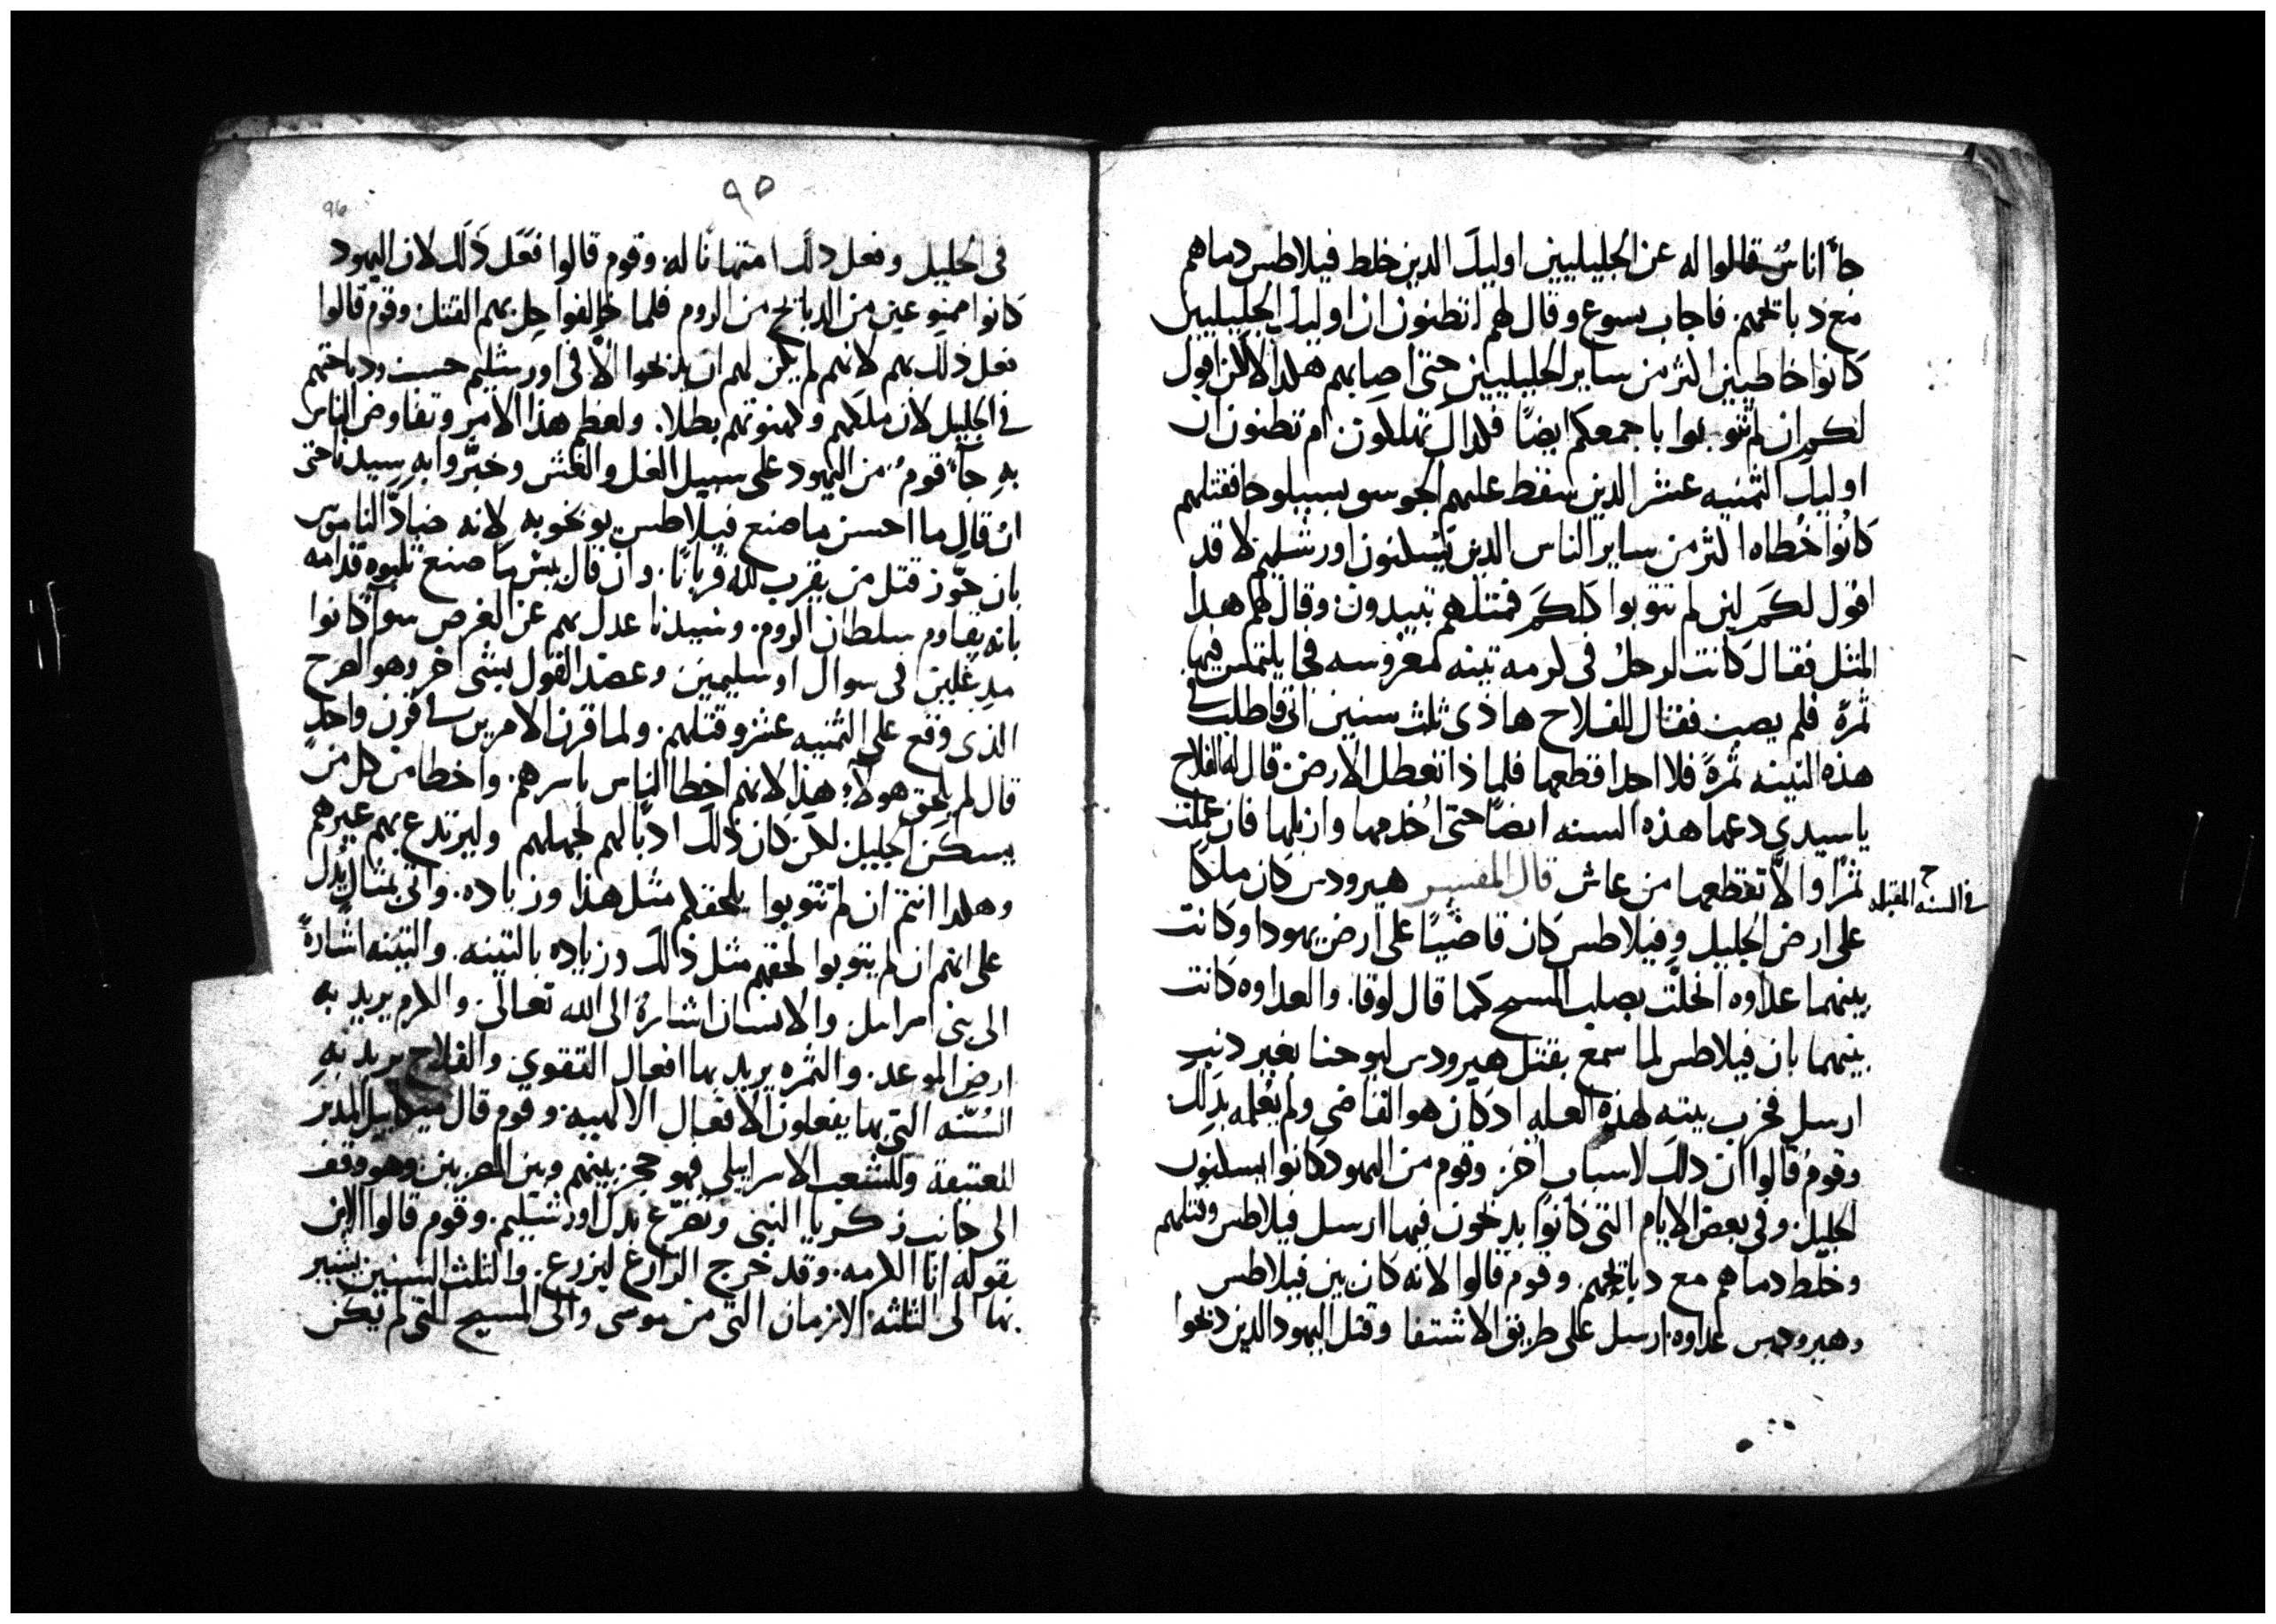 جآ اناسٌ قالوا له عن الجليليين اوليك الدين خلط فيلاطس دماهم
مع دبايحهم. فاجاب يسوع وقال لهم اتظنون ان اوليك الجليليين
كانوا خاطيين اكثر من ساير الجليليين حتى اصابهم هكدا لا لكن اقول
لكم ان لم تتوبوا باجمعكم ايضًا فكدلك تهلكون. ام تظنون ان
اوليك الثمنيه عشر الدين سقط عليهم الجوسق بسيلوحا فقتلهم
كانُوا خُطاه اكثر من ساير الناس الدين يَسْكنون اورشليم لا قد
اقول لكم لين لم تتوبوا كلكم فمتلهم تبيدون. وقال لهم هدا
المثل فقال كانت لرجلٌ فى كرمه تينه مغروسه فجا يلتمس فيها
ثمرةً فلم يصب فقال للفلاح هادى ثلث سنين اتى فاطلب فى
هذه التينه ثمرةً فلا اجد اقطعها فلماذا تعطل الارض. قال له الفلاح
يا سيدي دعها هذه السنه ايضًا حتى اخدمها وازبلها فان عملت
ثمرًا والاّ تقطعها من عاش قال المفسر هيرودس كان ملكًا
فى السنه المقبله
على ارض الجليل وفيلاطس كان قاضيًا على ارض يهودا وكانت
بينهما عداوه انحلّت بصلب المسيح كما قال لوقا. والعداوه كانت
بينهما بان فيلاطس لما سمع بقتل هيرودس ليوحنا بغير دنبٍ
ارسل فخرب بيته لهذه العله ادكان هو القاضى ولم يُعلمه بدلك.
وقوم قالوا ان دلك لاسباب اخر. وقوم من اليهود كانوا يسكنون
الجليل. وفى بعض الايام التى كانوا يدبحون فيها ارسل فيلاطس وقتلهم
وخلط دماهم مع دبايحهم. وقوم قالوا لانه كان بين فيلاطس
وهيرودس عداوه. ارسل على طريق الاشتفا وقتل اليهود الدين دبحوا
٩٥
96
فى الجليل وفعل دلك امتهانًا له. وقوم قالوا فعَل ذلك لان اليهود
كانوا ممنوعين من الدبايح من الروم فلما خالفوا حل بهم القتل. وقوم قالوا
فعل ذلك بهم لانهم لم يكن لهم ان يدبحوا الاّ فى اورشليم حسب ودباحتهم
فى الجليل لان ملكهم وكهنوتهم بطلا. ولعظم هذا الامر وتفاوض الناس
به جآ قومٌ من اليهود على سبيل الغل والغش وخبّروا به سيدنا حتى
ان قال ما احسن ما صنع فيلاطس يوبخو به لانه ضادّ الناموس
بان جوّز قتل من يقرب لله قربانًا. وان قال بيس ما صنع ثلبوه قدامه
بانه يقاوم سلطان الروم. وسيدنا عدل بهم عن الغرض سوآ كانوا
مدغلين فى سوال او سليمين وعضد القول بشى اخر وهو الصرح
الذى وقع على الثمنيه عشر وقتلهم. ولما قرن الامرين فى قرن واحدٍ
قال لم يلحق هولآء هذا لانهم اخطا الناس باسرهم. واخطا من كل من
يسكن الجليل لكن كان ذلك ادبًا لهم لجهلهم وليرتدع بهم غيرهم
وهكدا انتم ان لم تتوبوا يلحقكم مثل هذا وزياده. واتى بمثال يُدل
على انهم ان لم يتوبوا لحقهم مثل ذلك وزياده بالتينه. والتينه اشارةً
الى بنى اسرايل والانسان اشارةً الى الله تعالى والكرم يريد به
ارض الموعد. والثمره يريد بها افعال التقوى والفلاح يريد به
السُنّه التى بها يفعلون الافعال الالهيه. وقوم قال ميكاييل المدبر
للعتيقة وللشعب الاسراييلى فهو حجز بينهم وبين المصريين. وهو وقف
الى جانب زكريا النبى وتضرّع بدل اورشليم. وقوم قالوا الابن
بقوله انا الكرمه. وقد خرج الزارع ليزرع. والثلث السنين يشير
بها الى الثلثه الازمان التى من موسى والى المسيح التى لم يكن